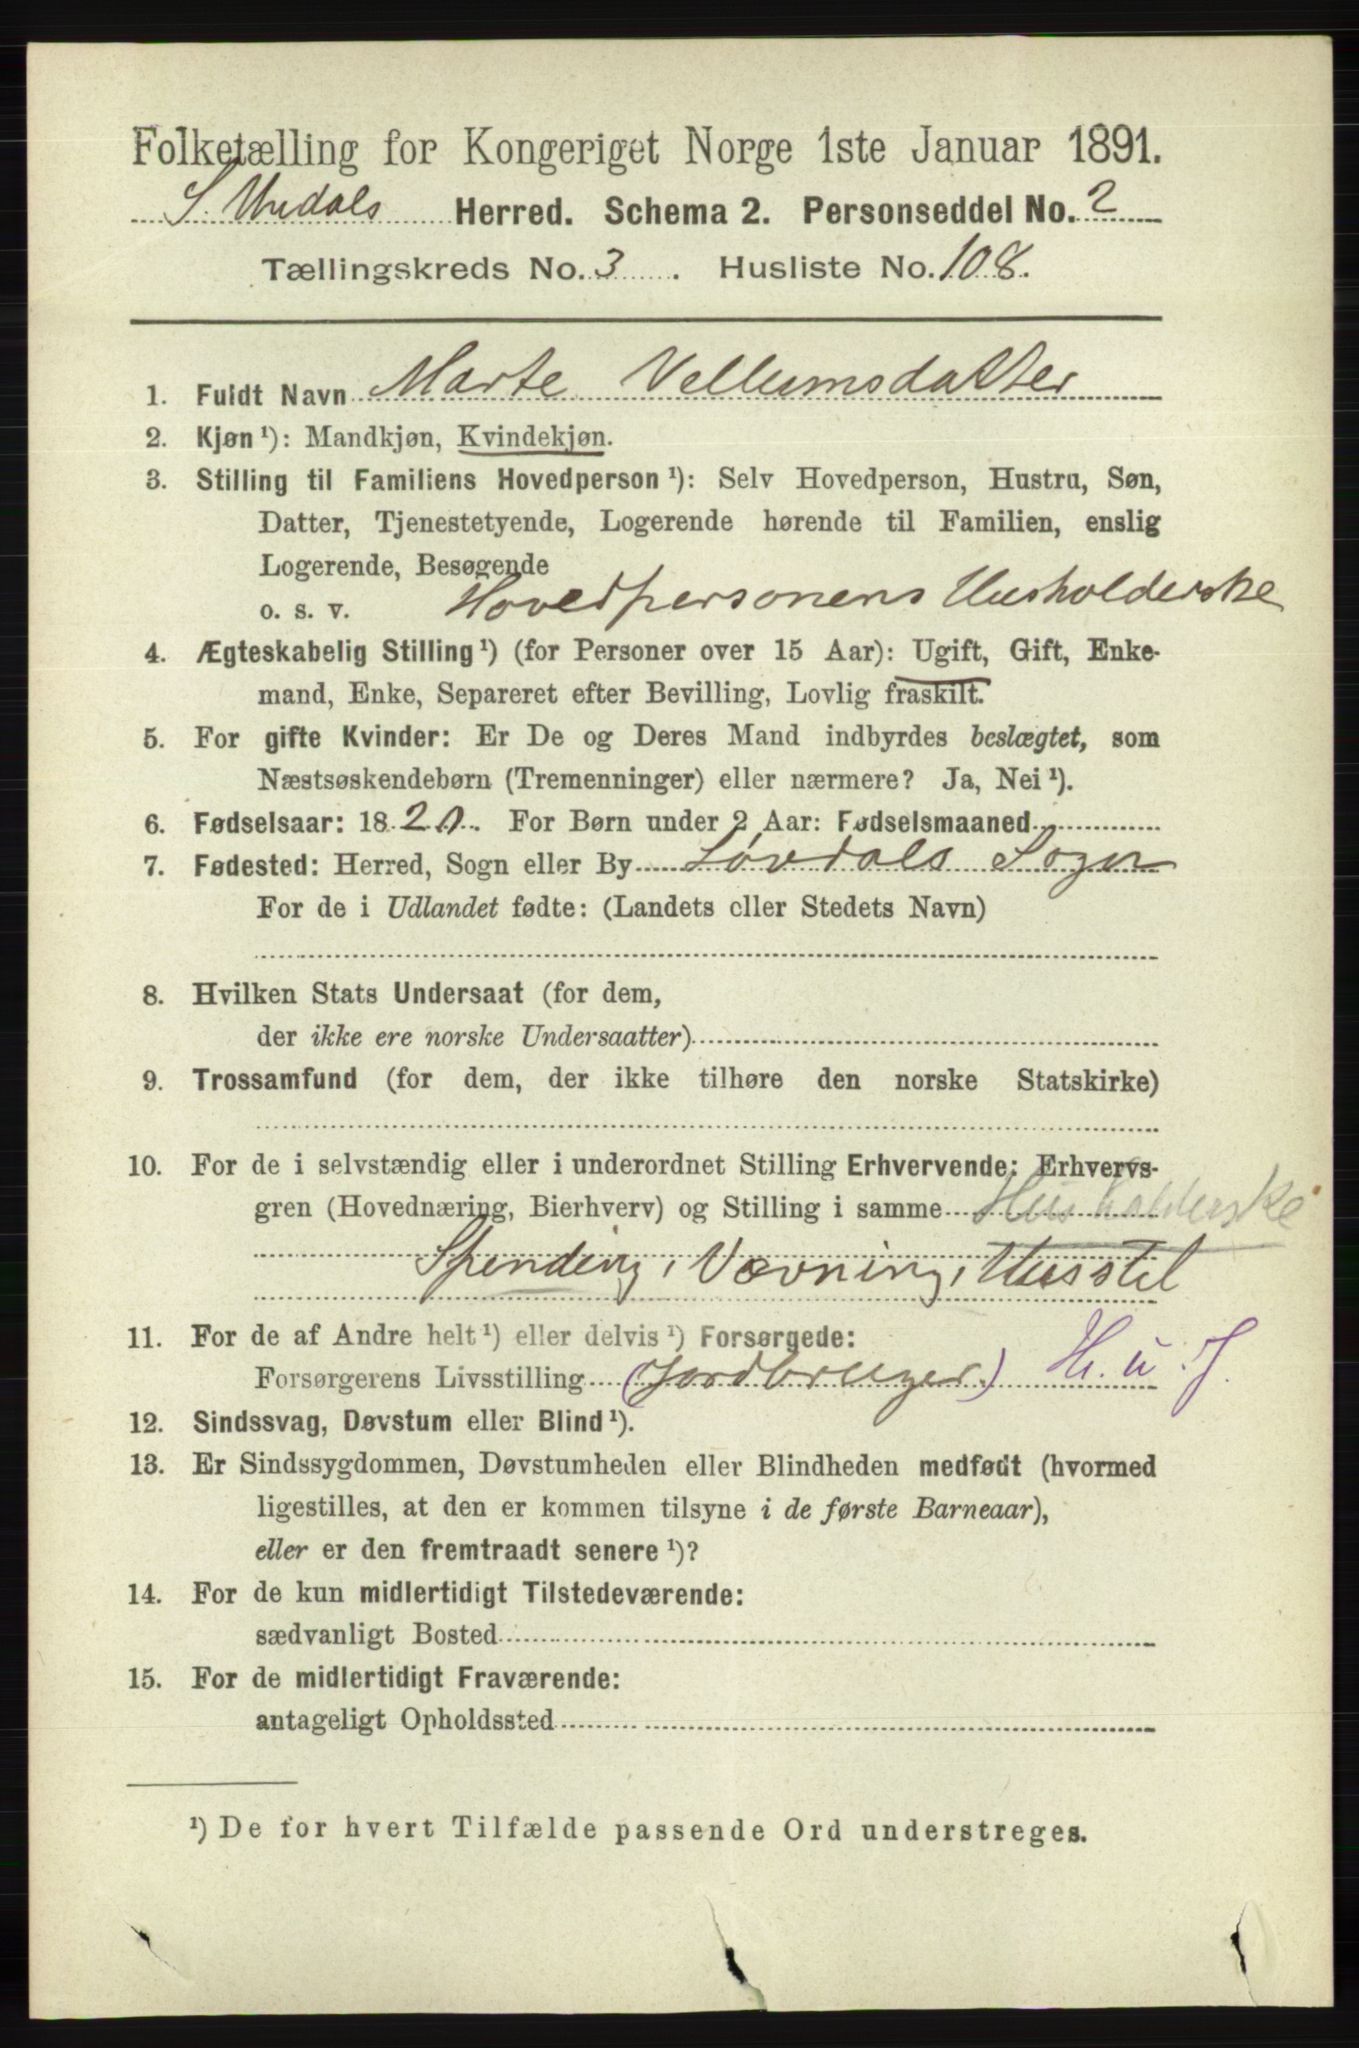 Folketælling for Kongeriget Norge 1ste Januar 1891.
S. Undals Herred. Schema 2. Personseddel No. 2
Tællingskreds No. 3. Husliste No. 108.
1. Fuldt Navn Marte Vellumsdatter
2. Kjøn ¹): Mandkjøn, Kvindekjøn.
3. Stilling til Familiens Hovedperson ¹): Selv Hovedperson, Hustru, Søn,
Datter, Tjenestetyende, Logerende hørende til Familien, enslig
Logerende, Besøgende
o. s. v. Hovedpersonens Husholderske
4. Ægteskabelig Stilling ¹) (for Personer over 15 Aar): Ugift, Gift, Enke-
mand, Enke, Separeret efter Bevilling, Lovlig fraskilt.
5. For gifte Kvinder: Er De og Deres Mand indbyrdes beslægtet, som
Næstsøskendebørn (Tremenninger) eller nærmere? Ja, Nei ¹).
6. Fødselsaar: 1820. For Børn under 2 Aar: Fødselsmaaned
7. Fødested: Herred, Sogn eller By Løvdals Sogn
For de i Udlandet fødte: (Landets eller Stedets Navn)
8. Hvilken Stats Undersaat (for dem,
der ikke ere norske Undersaatter)
9. Trossamfund (for dem, der ikke tilhøre den norske Statskirke)
10. For de i selvstændig eller i underordnet Stilling Erhvervende: Erhvervs-
gren (Hovednæring, Bierhverv) og Stilling i samme Husholderske
Spending, Vævning, Husstel
11. For de af Andre helt ¹) eller delvis ¹) Forsørgede:
Forsørgerens Livsstilling (Jordbruger) H. u. J.
12. Sindssvag, Døvstum eller Blind ¹).
13. Er Sindssygdommen, Døvstumheden eller Blindheden medfødt (hvormed
ligestilles, at den er kommen tilsyne i de første Barneaar),
eller er den fremtraadt senere ¹)?
14. For de kun midlertidigt Tilstedeværende:
sædvanligt Bosted
15. For de midlertidigt Fraværende:
antageligt Opholdssted
¹) De for hvert Tilfælde passende Ord understreges.